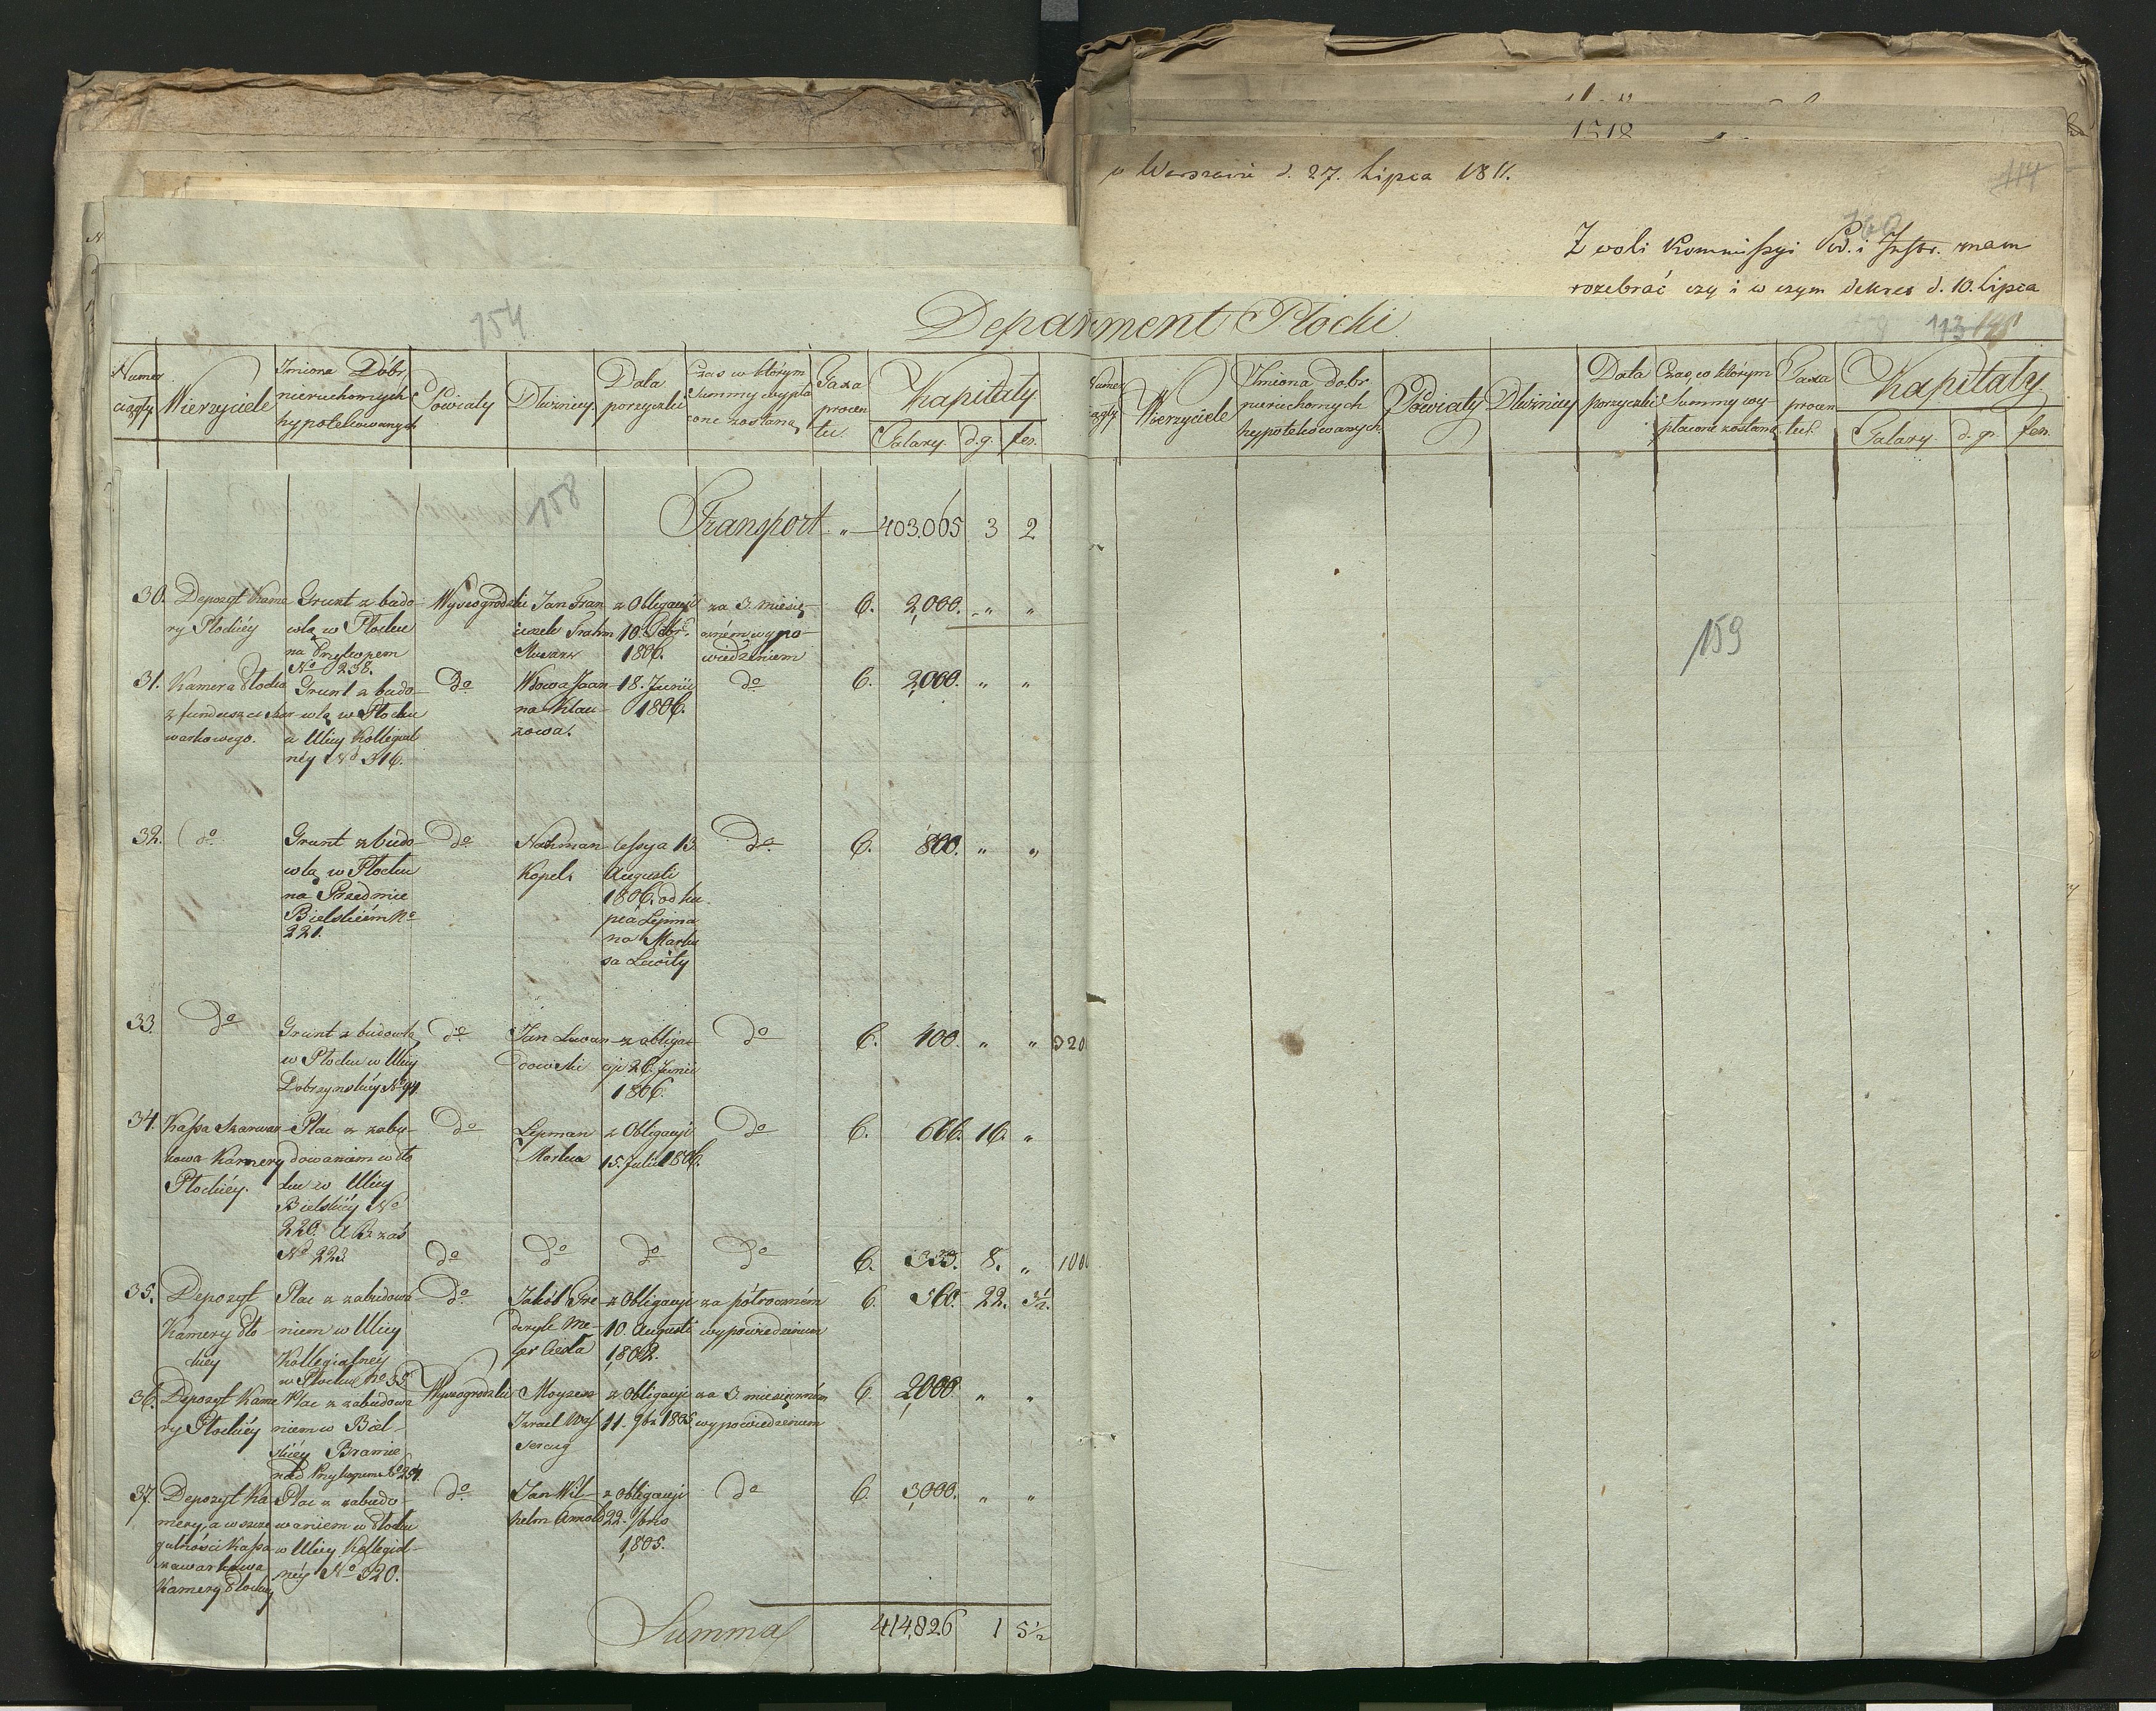 w Warszawie d. 27. Lipca 1811.
114
160
Z woli Kommissyi Rząd. i Instr. mam
rozebrać czy i w czym dekret d. 10. Lipca
1518
Department Płocki
154
113 148
Numer ciągły
Wierzyciele
Imiona Dóbr nieruchomych hypotekowanych
Powiaty
Dłużnicy
Data porzyczki
Czas w którym Summy wypła cone zostaną
Taxa procen tu.
Kapitały
Talary. d. g. fen.
158
Transport " 403.065 3 2
30. Depozyt Kame ry Płockiéy
Grunt z budo wlą w Płocku na Przykopem No 238.
Wyszogrodzki
Jan Fran ciszek Frahm Murarz
z Obligacyi 10. 7br. 1806.
za 3. miesię czném wypo wiedzeniem
6. 2,000. " "
31. Kamera Płocka z funduszu szar warkowego.
Grunt z budo wlą w Płocku z Ulicy Kollegial néy No 316.
Do
Wdowa Joan na Klau zowa.
18. Junii 1806.
do
6. 2,000. " "
32. do
Grunt z budo wlą w Płocku na Przedmie Bielskiém No 221.
Do
Nahman Kopel.
Cessya 13. Augusti 1806. od ku pca Lepma na Marku sa Lewity
Do
6. 800. " "
33. do
Grunt z budowlą w Płocku w Ulicy Dobrzynskiéy No 94.
do
Jan Lewan dowski
z obliga cyi 26. Junii 1806.
do
6. 400. " " 320
34. Kassa Szarwar kowa Kamery Płockiéy.
Plac z zabu dowaniem w Pło cku w Ulicy Bielskiéy No 220. A B zaś No 223.
do
Lepman Markus
z Obligacyi 15. Julii 1806.
Do
6. 666. 16. "
do do do do 6. 333. 8. " 100
35. Depozyt Kamery Pło ckiéy
Plac z zabudowa niem w Ulicy Kollegialnéy w Płocku No 35.
do
Jakób Fre deryk Me ser Cieśla
z Obligacyi 10. Augusti 1802.
za półroczném wypowiedzeniem
6. 560. 22. 3½.
36. Depozyt Kame ry Płockiéy
Plac z zabudowa niem w Biel skiéy Bramie nad Przykopem No 251.
Wyszogrodzki
Moyzesz Izrael Was serzug
z Obligacyi 11. 9br 1805
za 3. miesięczném wypowiedzeniem
6. 2,000. " "
37. Depozyt Ka mery, a w szcze gulności Kassa szarwarkowa Kamery Płockiéy
Plac z zabudo waniem w Płocku w Ulicy Kollegial néy No 320.
do
Jan Wil helm Arnold
z obligacyi 22. 1805.
do
6. 3,000. " "
Summa 414,826 1 5½
Numer ciągły
Wierzyciele
Imiona dobr nieruchomych hypotekowanych.
Powiaty
Dłużnicy
Data porzyczki
Czas, w którym Summy wy płacone zostaną
Taxa procen tu.
Kapitały
Talary. d. gr. fen.
159